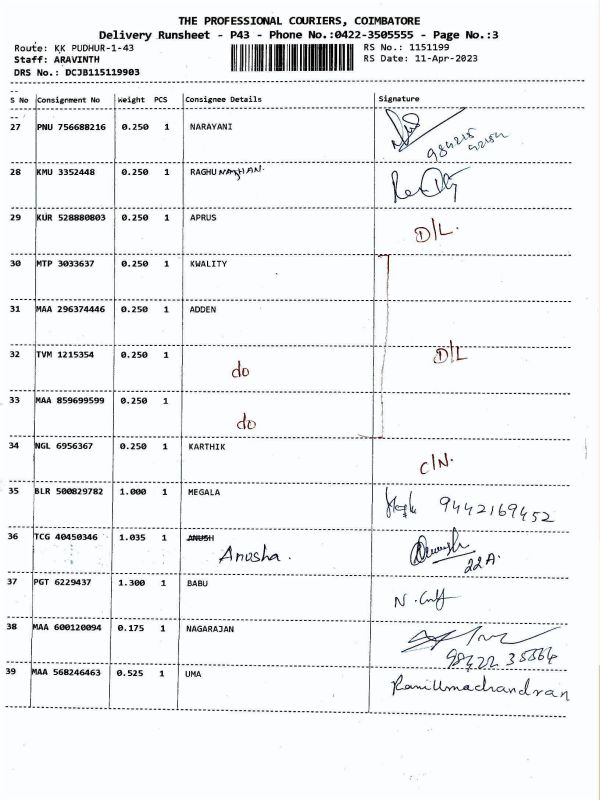 THE PROFESSIONAL COURIERS, COIMBATORE
Delivery Runsheet - P43 - Phone No.:0422-3505555 - Page No.:3
Route: KK PUDHUR-1-43 RS No.: 1151199
Staff: ARAVINTH RS Date: 11-Apr-2023
DRS No.: DCJB115119903
S No Consignment No Weight PCS Consignee Details Signature
27 PNU 756688216 0.250 1 NARAYANI
28 KMU 3352448 0.250 1 RAGHUNATHAN.
29 KUR 528880803 0.250 1 APRUS D/L.
30 MTP 3033637 0.250 1 KWALITY
31 MAA 296374446 0.250 1 ADDEN
32 TVM 1215354 0.250 1 do D/L
33 MAA 859699599 0.250 1 do
34 NGL 6956367 0.250 1 KARTHIK C/N.
35 BLR 500829782 1.000 1 MEGALA 9442169452
36 TCG 40450346 1.035 1 ANUSH
Anusha. 22A.
37 PGT 6229437 1.300 1 BABU
38 MAA 600120094 0.175 1 NAGARAJAN
39 MAA 568246463 0.525 1 UMA RaniUmachandran